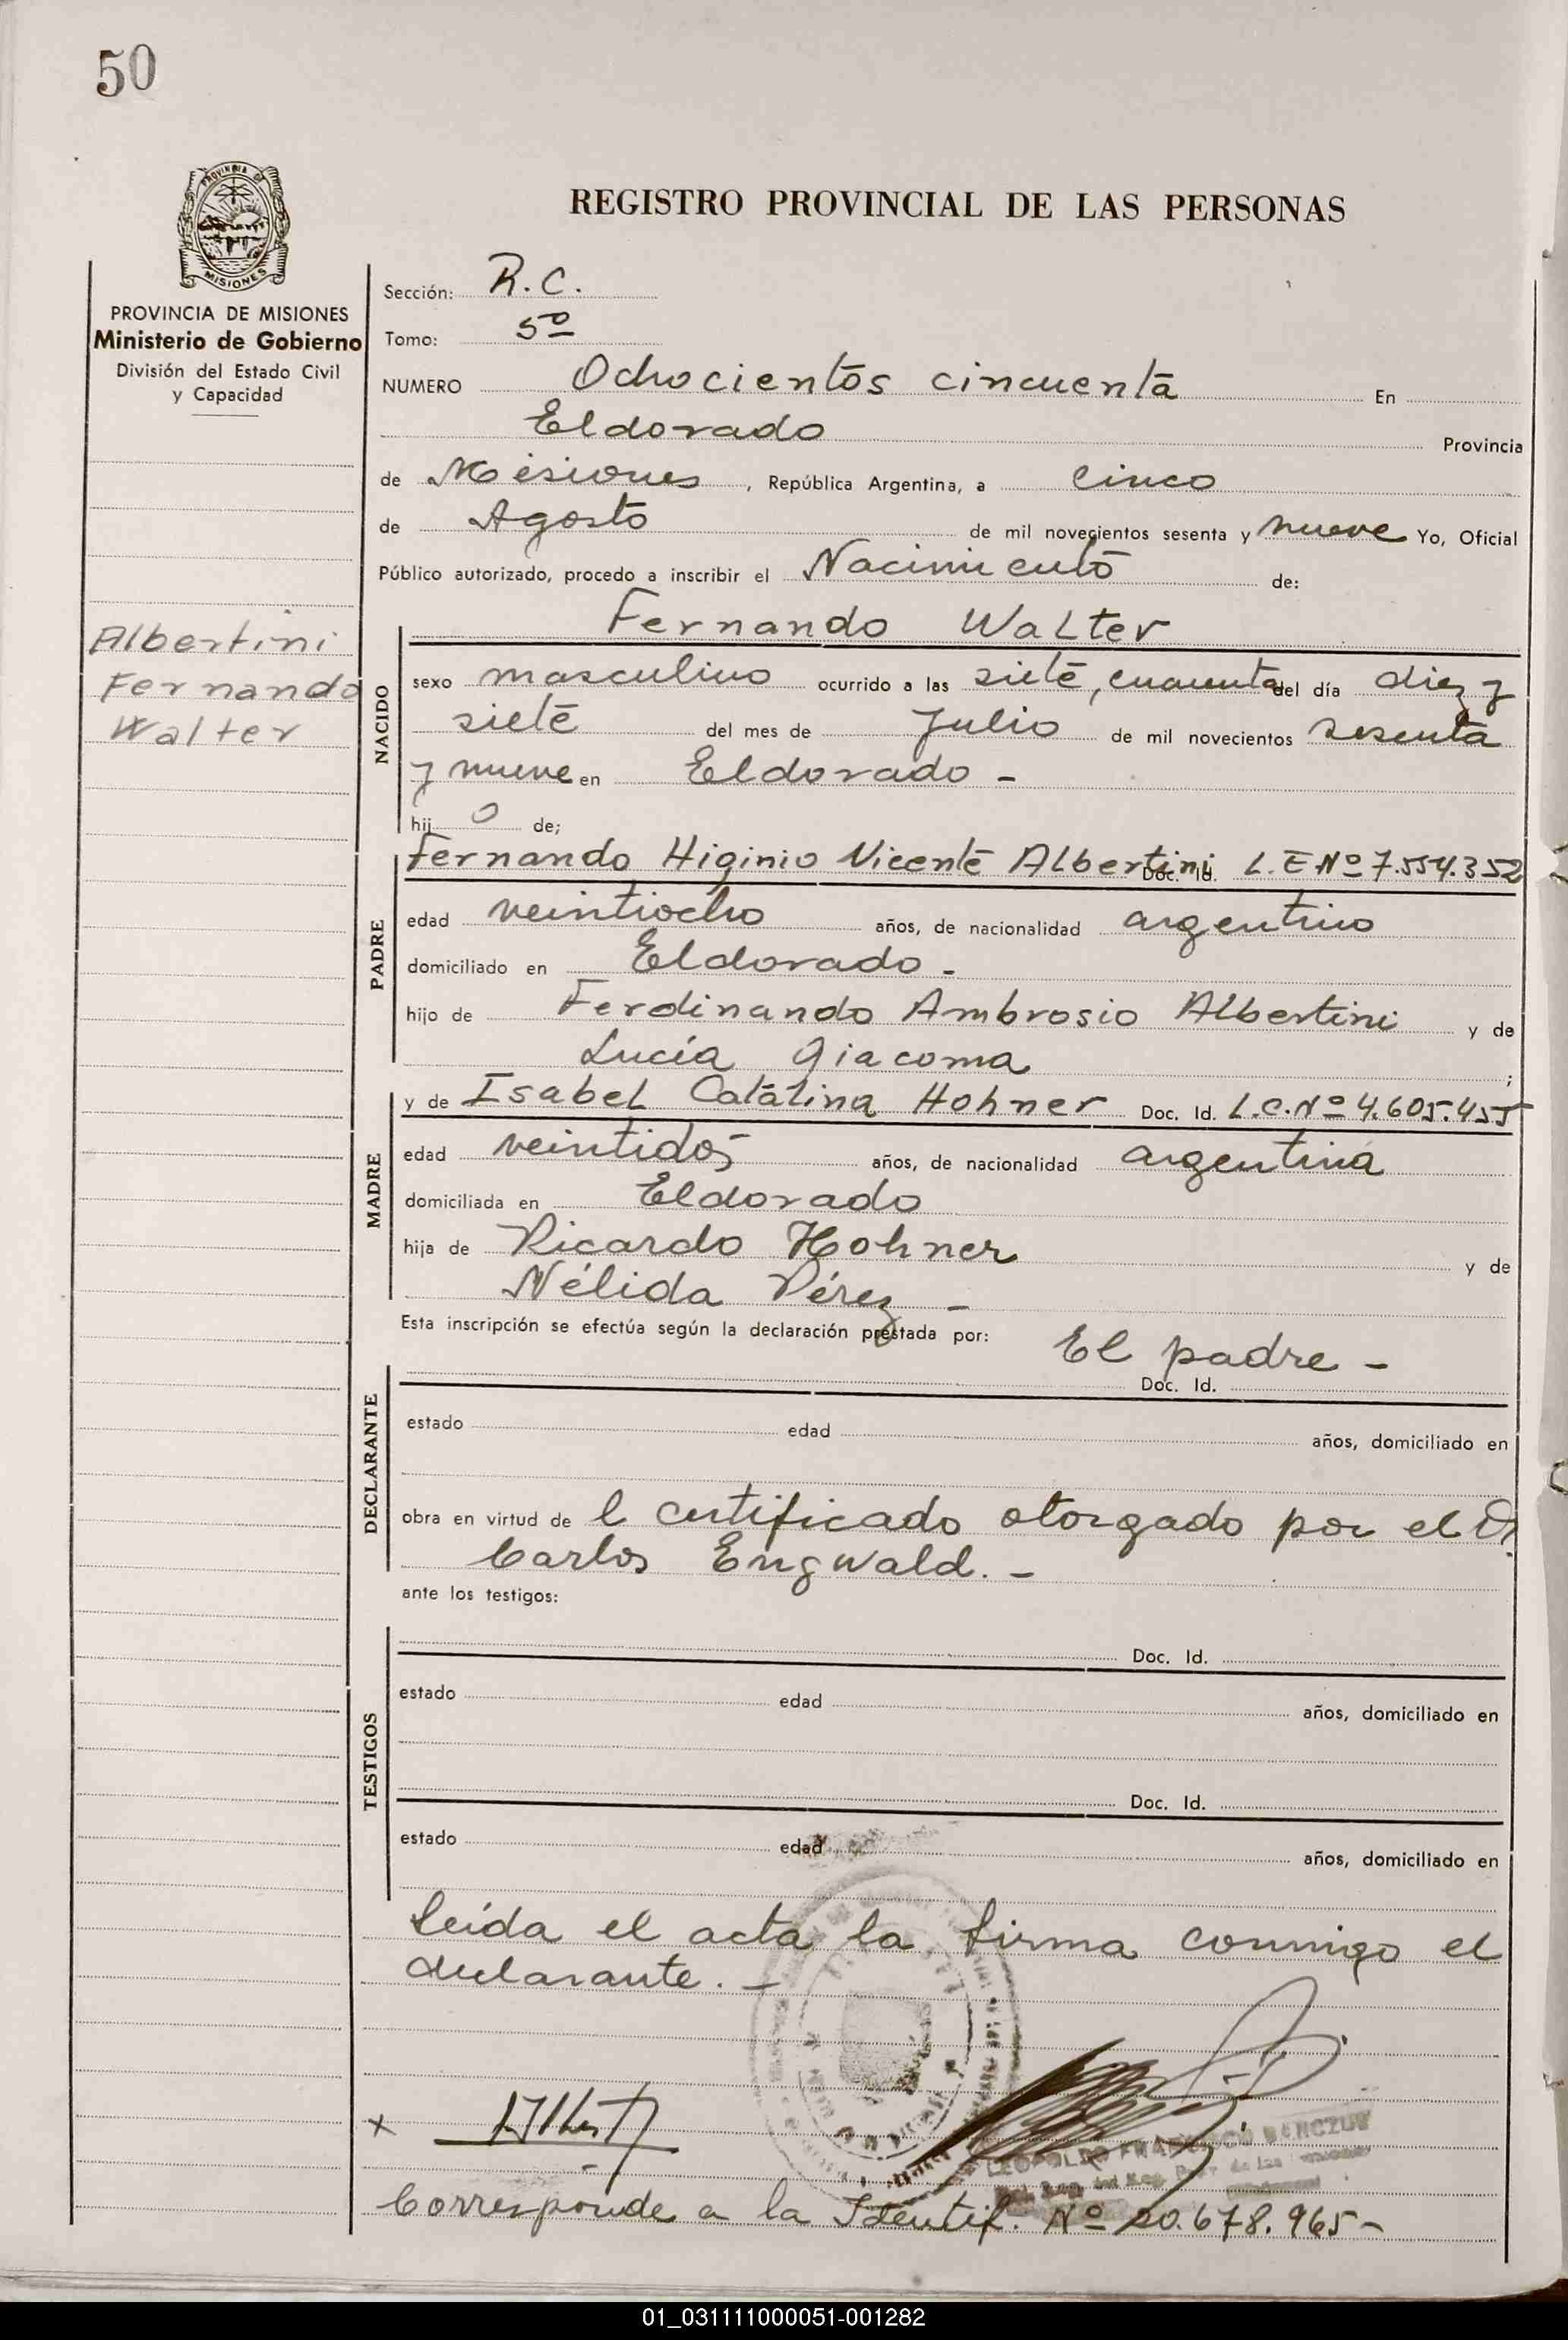 50
PROVINCIA DE
MISIONES
REGISTRO PROVINCIAL DE LAS PERSONAS
PROVINCIA DE MISIONES
Ministerio de Gobierno
División del Estado Civil
y Capacidad
Albertini
Fernando
Walter
Sección: R.C.
Tomo: 5º
NUMERO Ochocientos cincuenta En
Eldorado Provincia
de Misiones, República Argentina, a cinco
de Agosto de mil novecientos sesenta y nueve Yo, Oficial
Público autorizado, procedo a inscribir el Nacimiento de:
NACIDO
Fernando Walter
sexo masculino ocurrido a las siete, cuarenta del día diez y
siete del mes de Julio de mil novecientos sesenta
y nueve en Eldorado -
hij o de;
PADRE
Fernando Higinio Vicente Albertini Doc. Id. L.E Nº 7.554.352
edad veintiocho años, de nacionalidad argentino
domiciliado en Eldorado -
hijo de Ferdinando Ambrosio Albertini y de
Lucía Giacoma ;
MADRE
y de Isabel Catalina Hohner Doc. Id. L.C. Nº 4.605.455
edad veintidos años, de nacionalidad argentina
domiciliada en Eldorado
hija de Ricardo Hohner y de
Nélida Pérez -
Esta inscripción se efectúa según la declaración prestada por: El padre -
DECLARANTE
Doc. Id.
estado edad años, domiciliado en
obra en virtud de l certificado otorgado por el Dr.
Carlos Engwald. -
ante los testigos:
TESTIGOS
Doc. Id.
estado edad años, domiciliado en
Doc. Id.
estado edad años, domiciliado en
Leída el acta la firma conmigo el
declarante. -
x
LEOPOLDO FRANCISCO
Corresponde a la Identif. Nº 20.678.965-
01_031111000051-001282